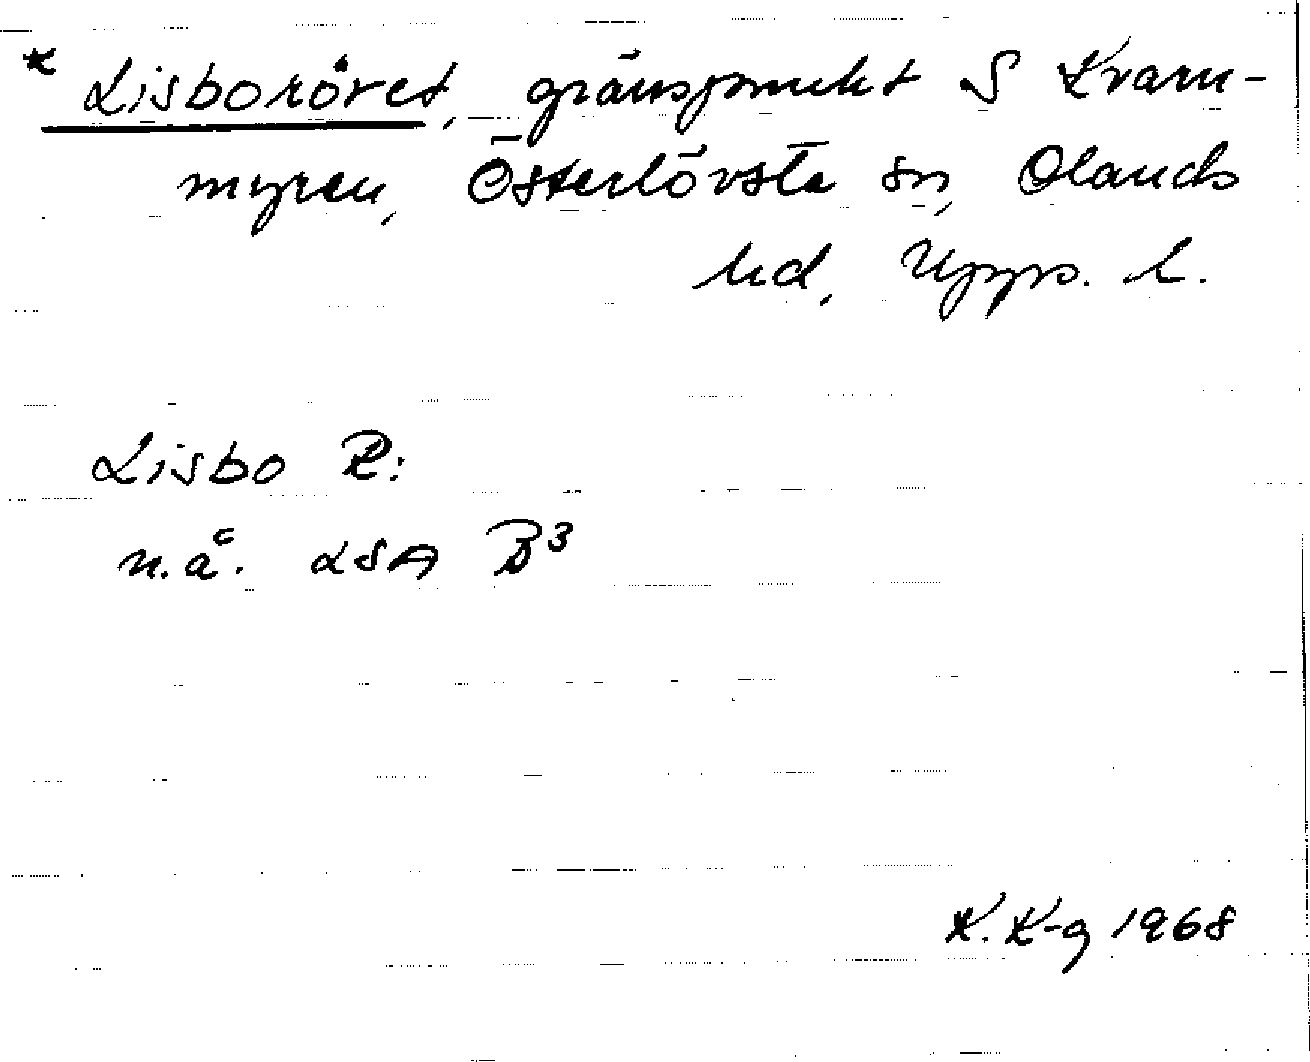 * Lisboröret, gränspunkt S Kvarn-
myren, Österlövsta sn, Olands
hd, Upps. l.
Lisbo R:
n.å. LSA B3
K. K-g 1968